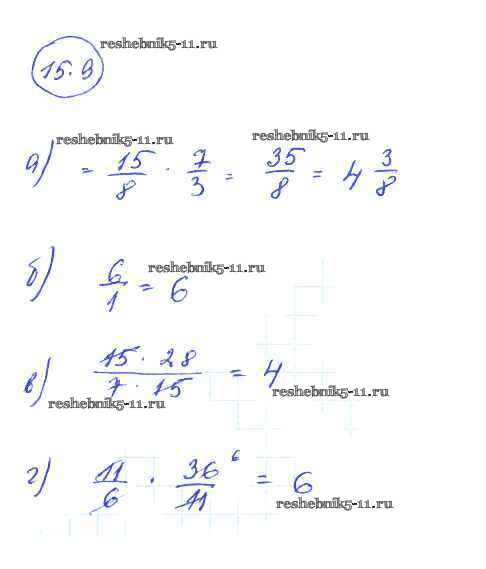 reshebnik5-11.ru
15.9
reshebnik5-11.ru reshebnik5-11.ru
а) = 15/8 · 7/3 = 35/8 = 4 3/8
б) 6/1 = 6 reshebnik5-11.ru
в) 15 · 28 / 7 · 15 = 4
reshebnik5-11.ru reshebnik5-11.ru
г) 11/6 · 36/11 6 = 6
reshebnik5-11.ru